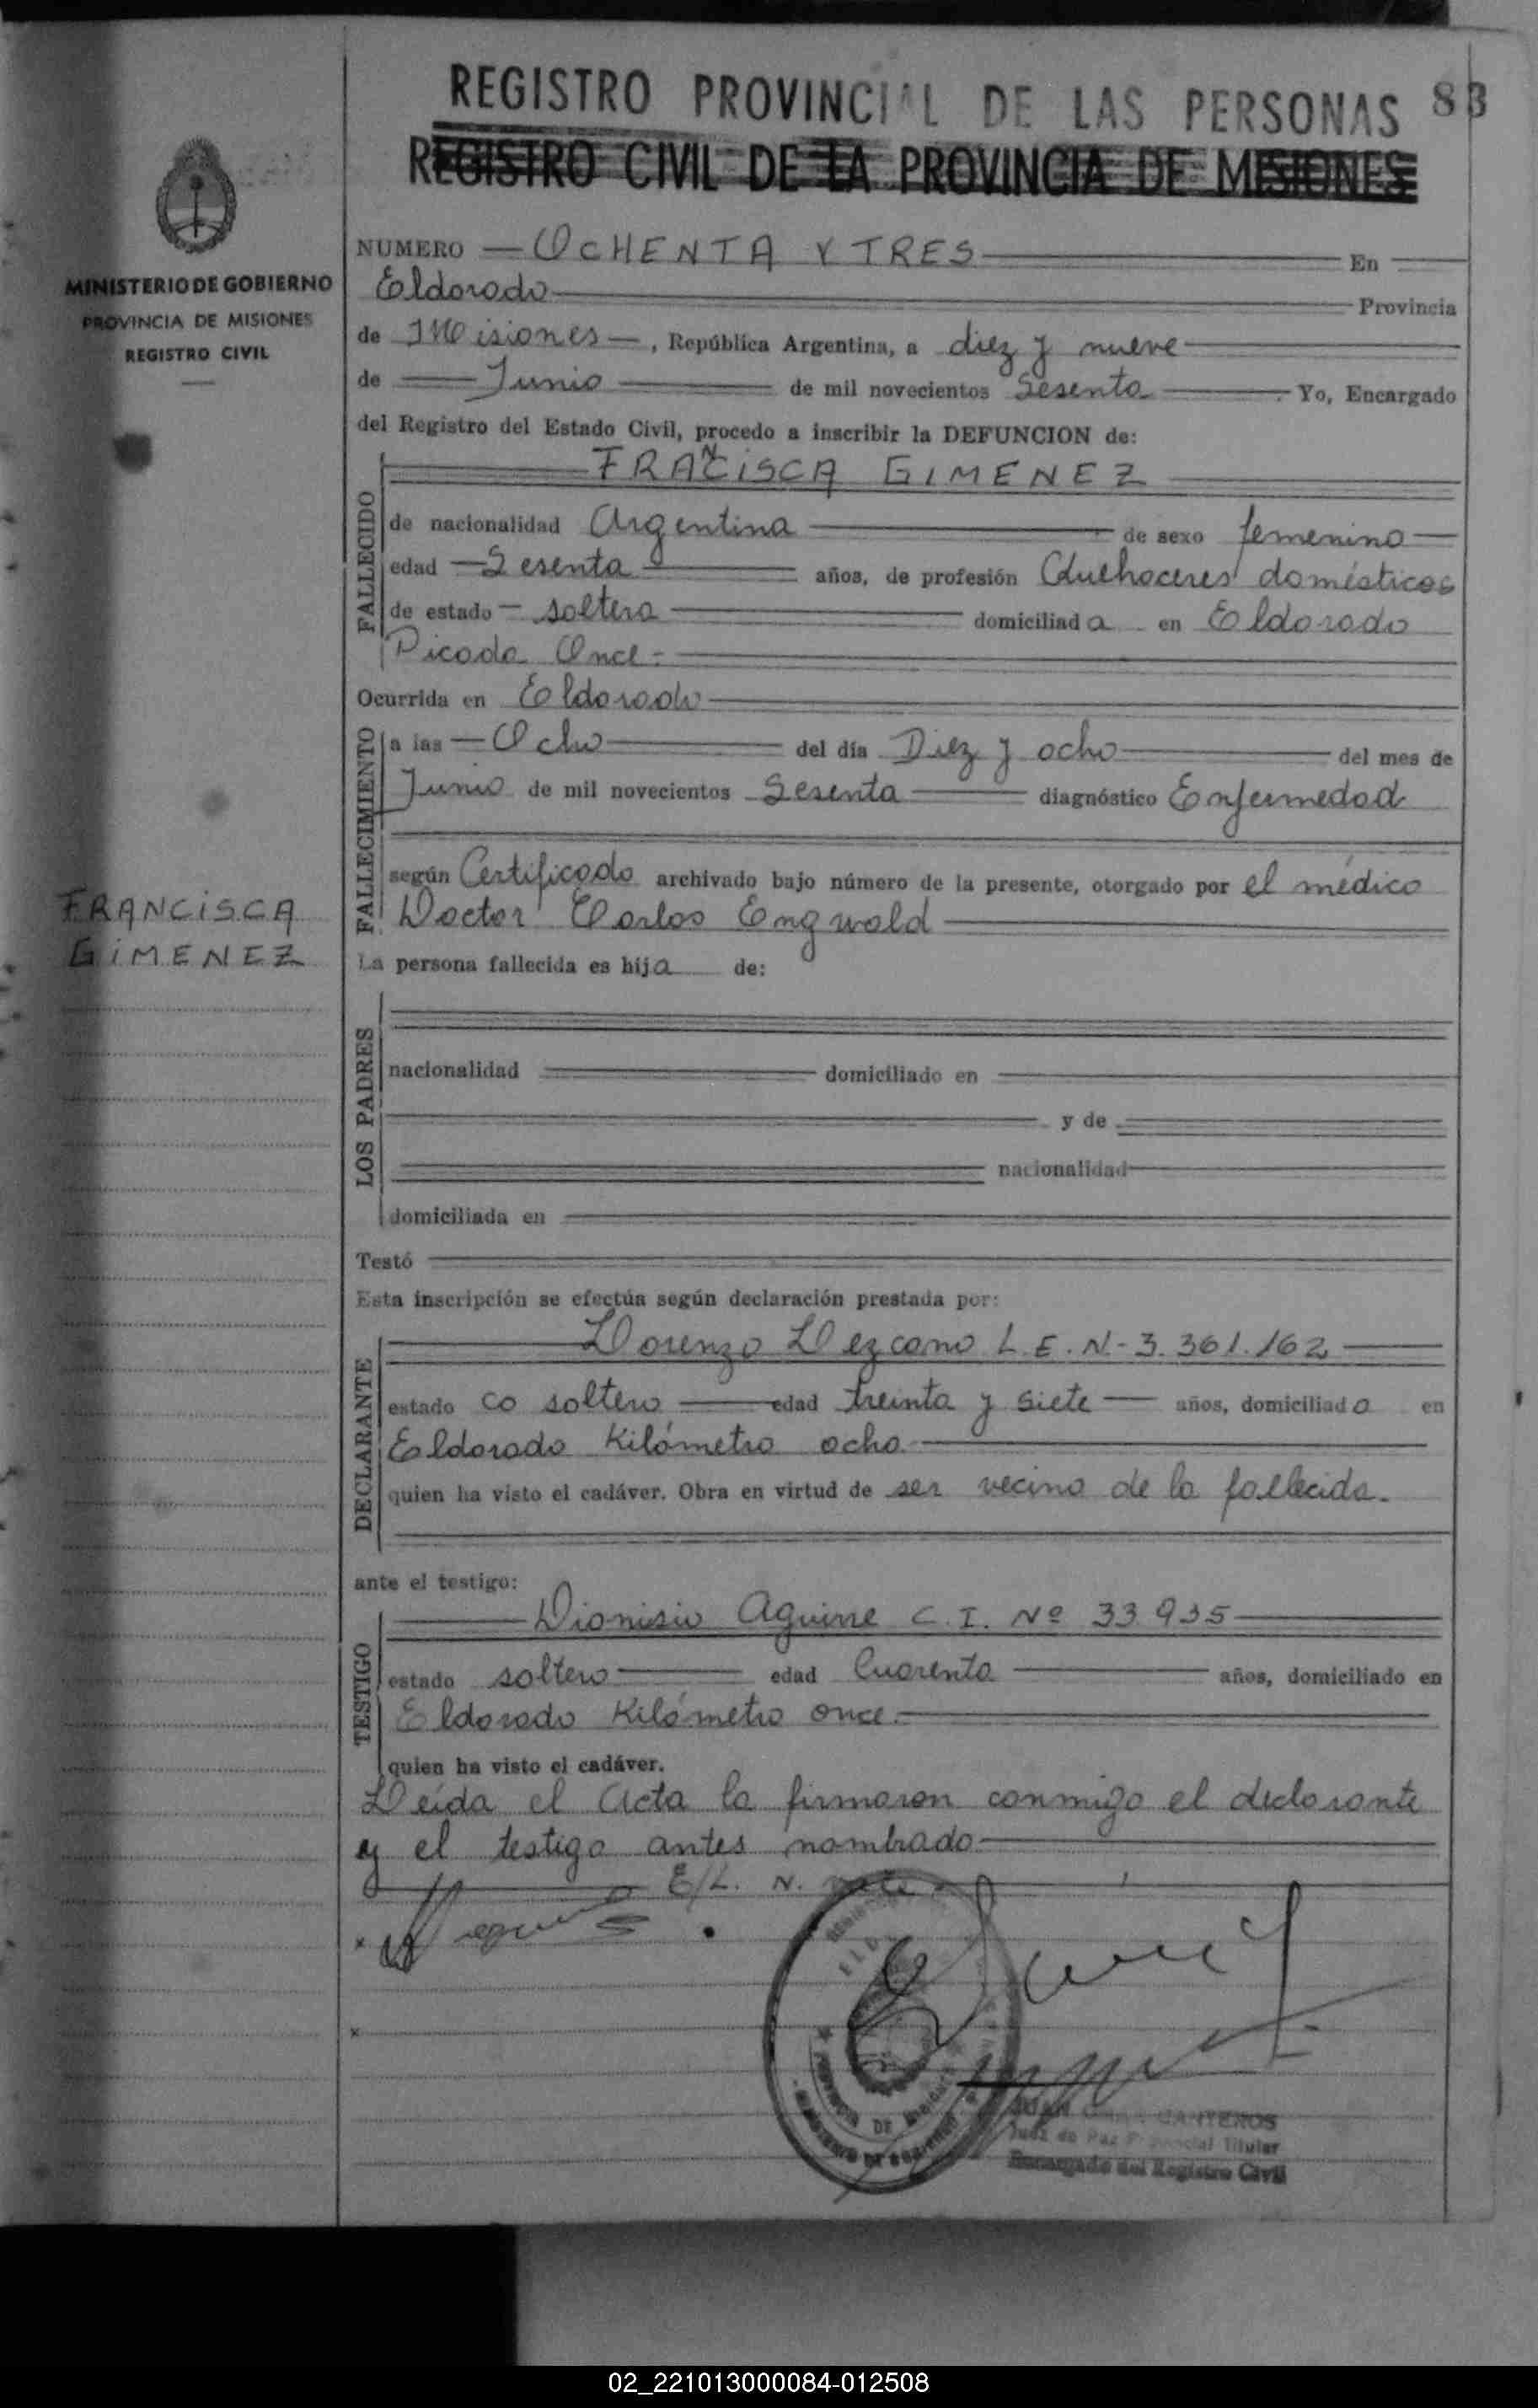 REGISTRO PROVINCIAL DE LAS PERSONAS 83
REGISTRO CIVIL DE LA PROVINCIA DE MISIONES
MINISTERIO DE GOBIERNO
PROVINCIA DE MISIONES
REGISTRO CIVIL
NUMERO OCHENTA Y TRES En
Eldorado Provincia
de Misiones, República Argentina, a diez y nueve
de Junio de mil novecientos Sesenta Yo, Encargado
del Registro del Estado Civil, procedo a inscribir la DEFUNCION de:
FRANCISCA GIMENEZ
FALLECIDO
de nacionalidad Argentina de sexo femenino
edad Sesenta años, de profesión Quehaceres domésticos
de estado soltera domiciliada en Eldorado
Picada Once.
Ocurrida en Eldorado
FALLECIMIENTO
a las Ocho del día Diez y ocho del mes de
Junio de mil novecientos Sesenta diagnóstico Enfermedad
según Certificado archivado bajo número de la presente, otorgado por el médico
Doctor Carlos Engwald
FRANCISCA
GIMENEZ
La persona fallecida es hija de:
LOS PADRES
nacionalidad domiciliado en
y de
nacionalidad
domiciliada en
Testó
Esta inscripción se efectúa según declaración prestada por:
DECLARANTE
Lorenzo Lezcano L.E.N-3.361.162
estado co soltero edad treinta y siete años, domiciliado en
Eldorado Kilómetro ocho
quien ha visto el cadáver. Obra en virtud de ser vecino de la fallecida.
ante el testigo:
TESTIGO
Dionisio Aguirre C.I. Nº 33935
estado soltero edad Cuarenta años, domiciliado en
Eldorado Kilómetro once.
quien ha visto el cadáver.
Leída el Acta la firmaron conmigo el declarante
y el testigo antes nombrado
E/L. N.
PROVINCIA DE MISIONES
MINISTERIO DE GOBIERNO
CANTEROS
Juez de Paz Provincial Titular
Encargado del Registro Civil
02_221013000084-012508